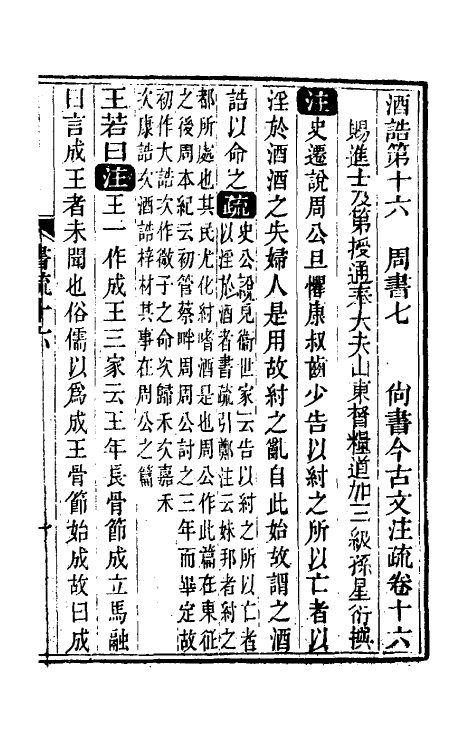 酒誥第十六　周書七　尙書今古文注疏卷十六
賜進士及第授通奉大夫山東督糧道加三級孫星衍撰
注史遷說周公旦懼康叔齒少告以紂之所以亡者以
淫於酒酒之失婦人是用故紂之亂自此始故謂之酒
誥以命之疏史公說見衞世家云告以紂之所以亡者
以淫於酒者書疏引鄭注云妹邦者紂之
都所處也其民尤化紂嗜酒是也周公作此篇在東征
之後周本紀云初管蔡畔周周公討之三年而畢定故
初作大誥次作微子之命次歸禾次嘉禾
次康誥次酒誥梓材其事在周公之篇
王若曰注王一作成王三家云王年長骨節成立馬融
曰言成王者未聞也俗儒以爲成王骨節始成故曰成
書疏十六